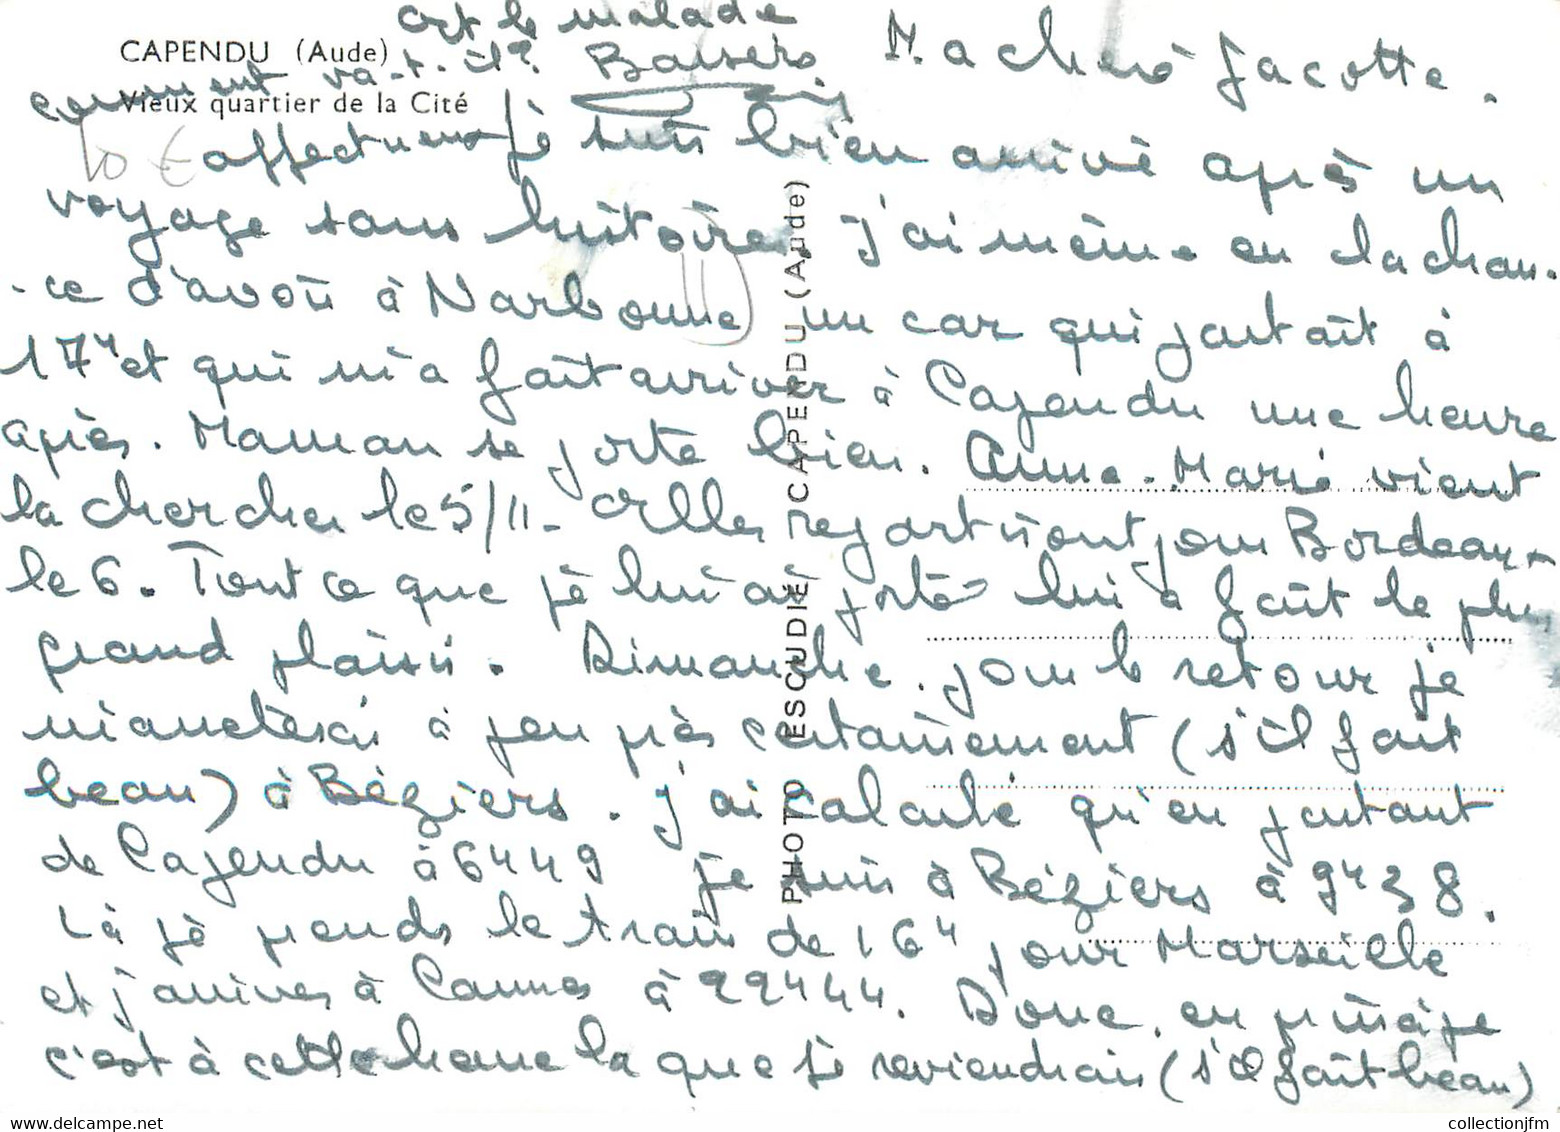 CAPENDU (Aude)
Vieux quartier de la Cité
Ma chère Jacotte.
Je suis bien arrivé après un
voyage sans histoire. J'ai même eu la chan-
-ce d'avoir à Narbonne un car qui partait à
17h et qui m'a fait arriver à Capendu une heure
après. Maman se porte bien. Anne-Marie vient
la chercher le 5/11 - Elles repartiront pour Bordeaux
le 6. Tout ce que je lui ai porté lui a fait le plus
grand plaisir. Dimanche, pour le retour je
m'arrêterai à peu près certainement (s'il fait
beau) à Béziers. J'ai calculé qu'en partant
de Capendu à 6h49 je suis à Béziers à 9h38.
Là je prends le train de 16h pour Marseille
et j'arrive à Cannes à 22h44. Donc, en principe
c'est à cette heure la que je reviendrais (s'il fait beau)
Et le malade
comment va-t-il? Baisers
affectueux
10 €
PHOTO ESCUDIÉ CAPENDU (Aude)
https://www.delcampe.net
collectionjfm